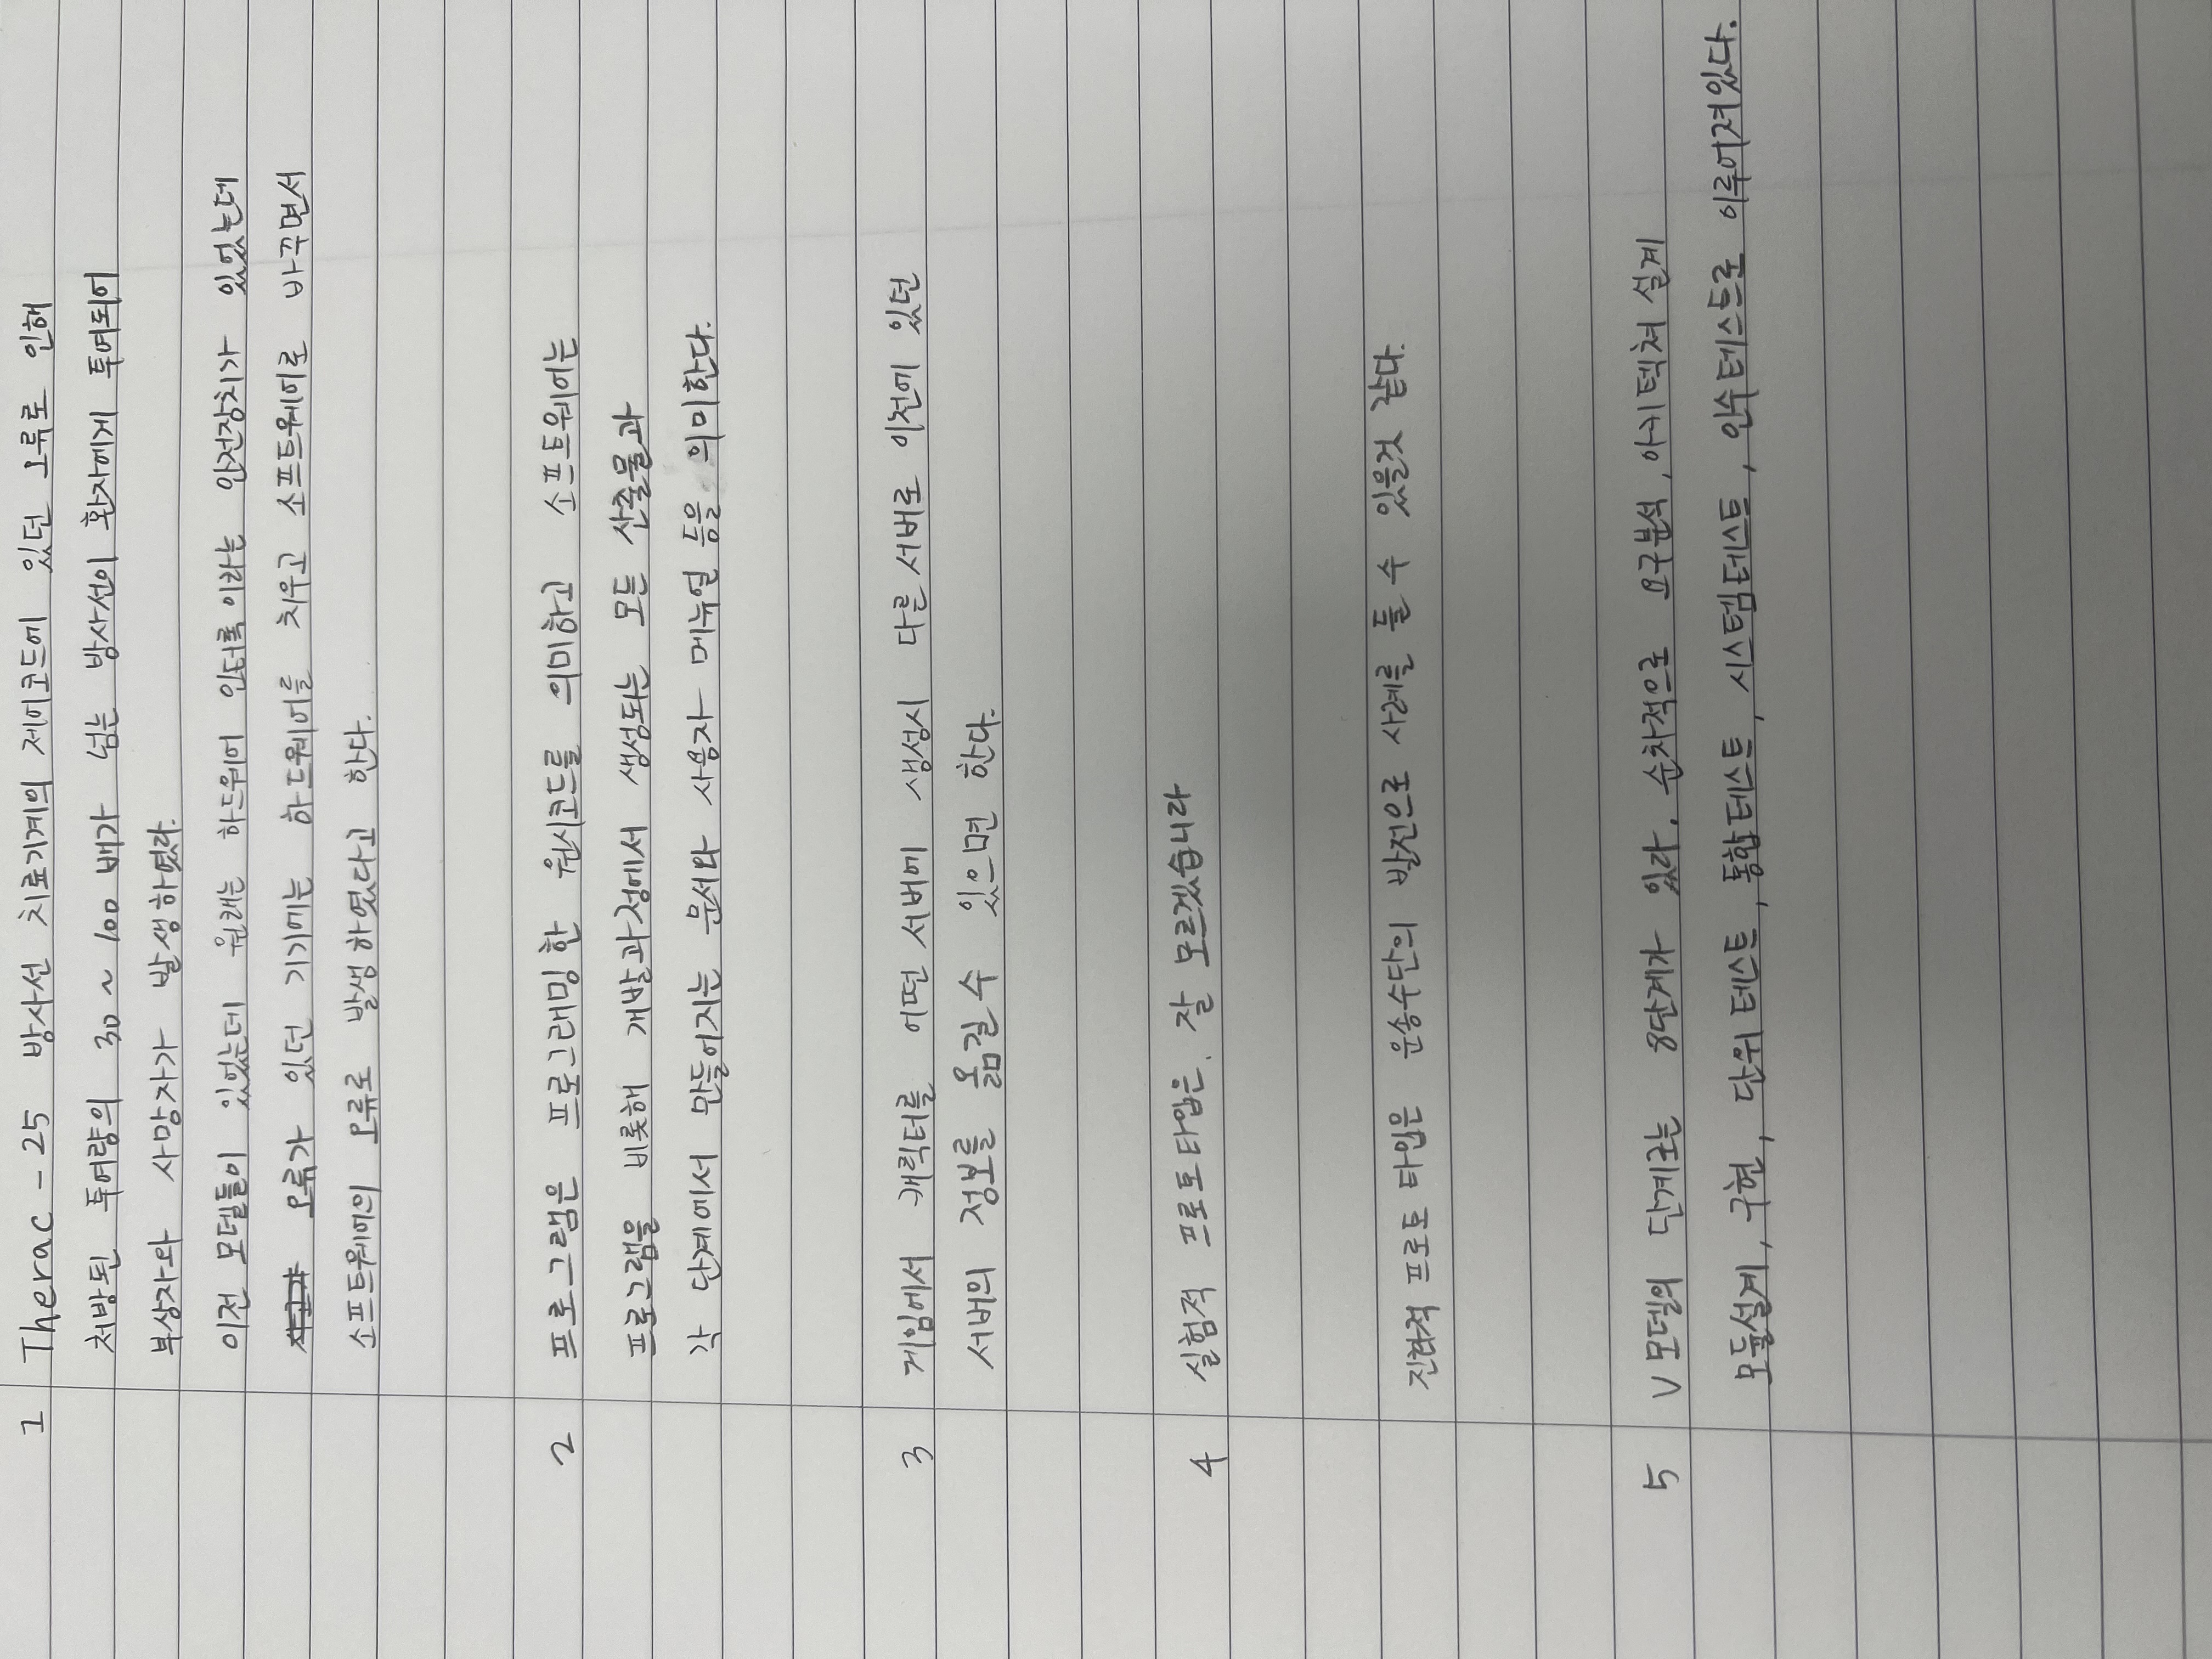 1 Therac - 25 방사선 치료기계의 제어코드에 있던 오류로 인해
처방된 투여량의 30 ~ 100 배가 넘는 방사선이 환자에게 투여되어
부상자와 사망자가 발생하였다.
이전 모델들이 있었는데 원래는 하드웨어 인터록이라는 안전장치가 있었는데
오류가 있던 기기에는 하드웨어를 치우고 소프트웨어로 바꾸면서
소프트웨어의 오류로 발생하였다고 한다.
2 프로그램은 프로그래밍한 원시코드를 의미하고 소프트웨어는
프로그램을 비롯해 개발과정에서 생성되는 모든 산출물과
각 단계에서 만들어지는 문서와 사용자 메뉴얼 등을 의미한다.
3 게임에서 캐릭터를 어떤 서버에 생성시 다른 서버로 이전에 있던
서버의 정보를 옮길 수 있으면 한다.
4 실험적 프로토타입은. 잘 모르겠습니다
진화적 프로토 타입은 운송수단의 발전으로 사례를 들 수 있을것 같다.
5 V 모델의 단계로는 8단계가 있다. 순차적으로 요구분석, 아키텍쳐 설계
모듈설계, 구현, 단위 테스트, 통합테스트, 시스템테스트, 인수테스트로 이루어져있다.